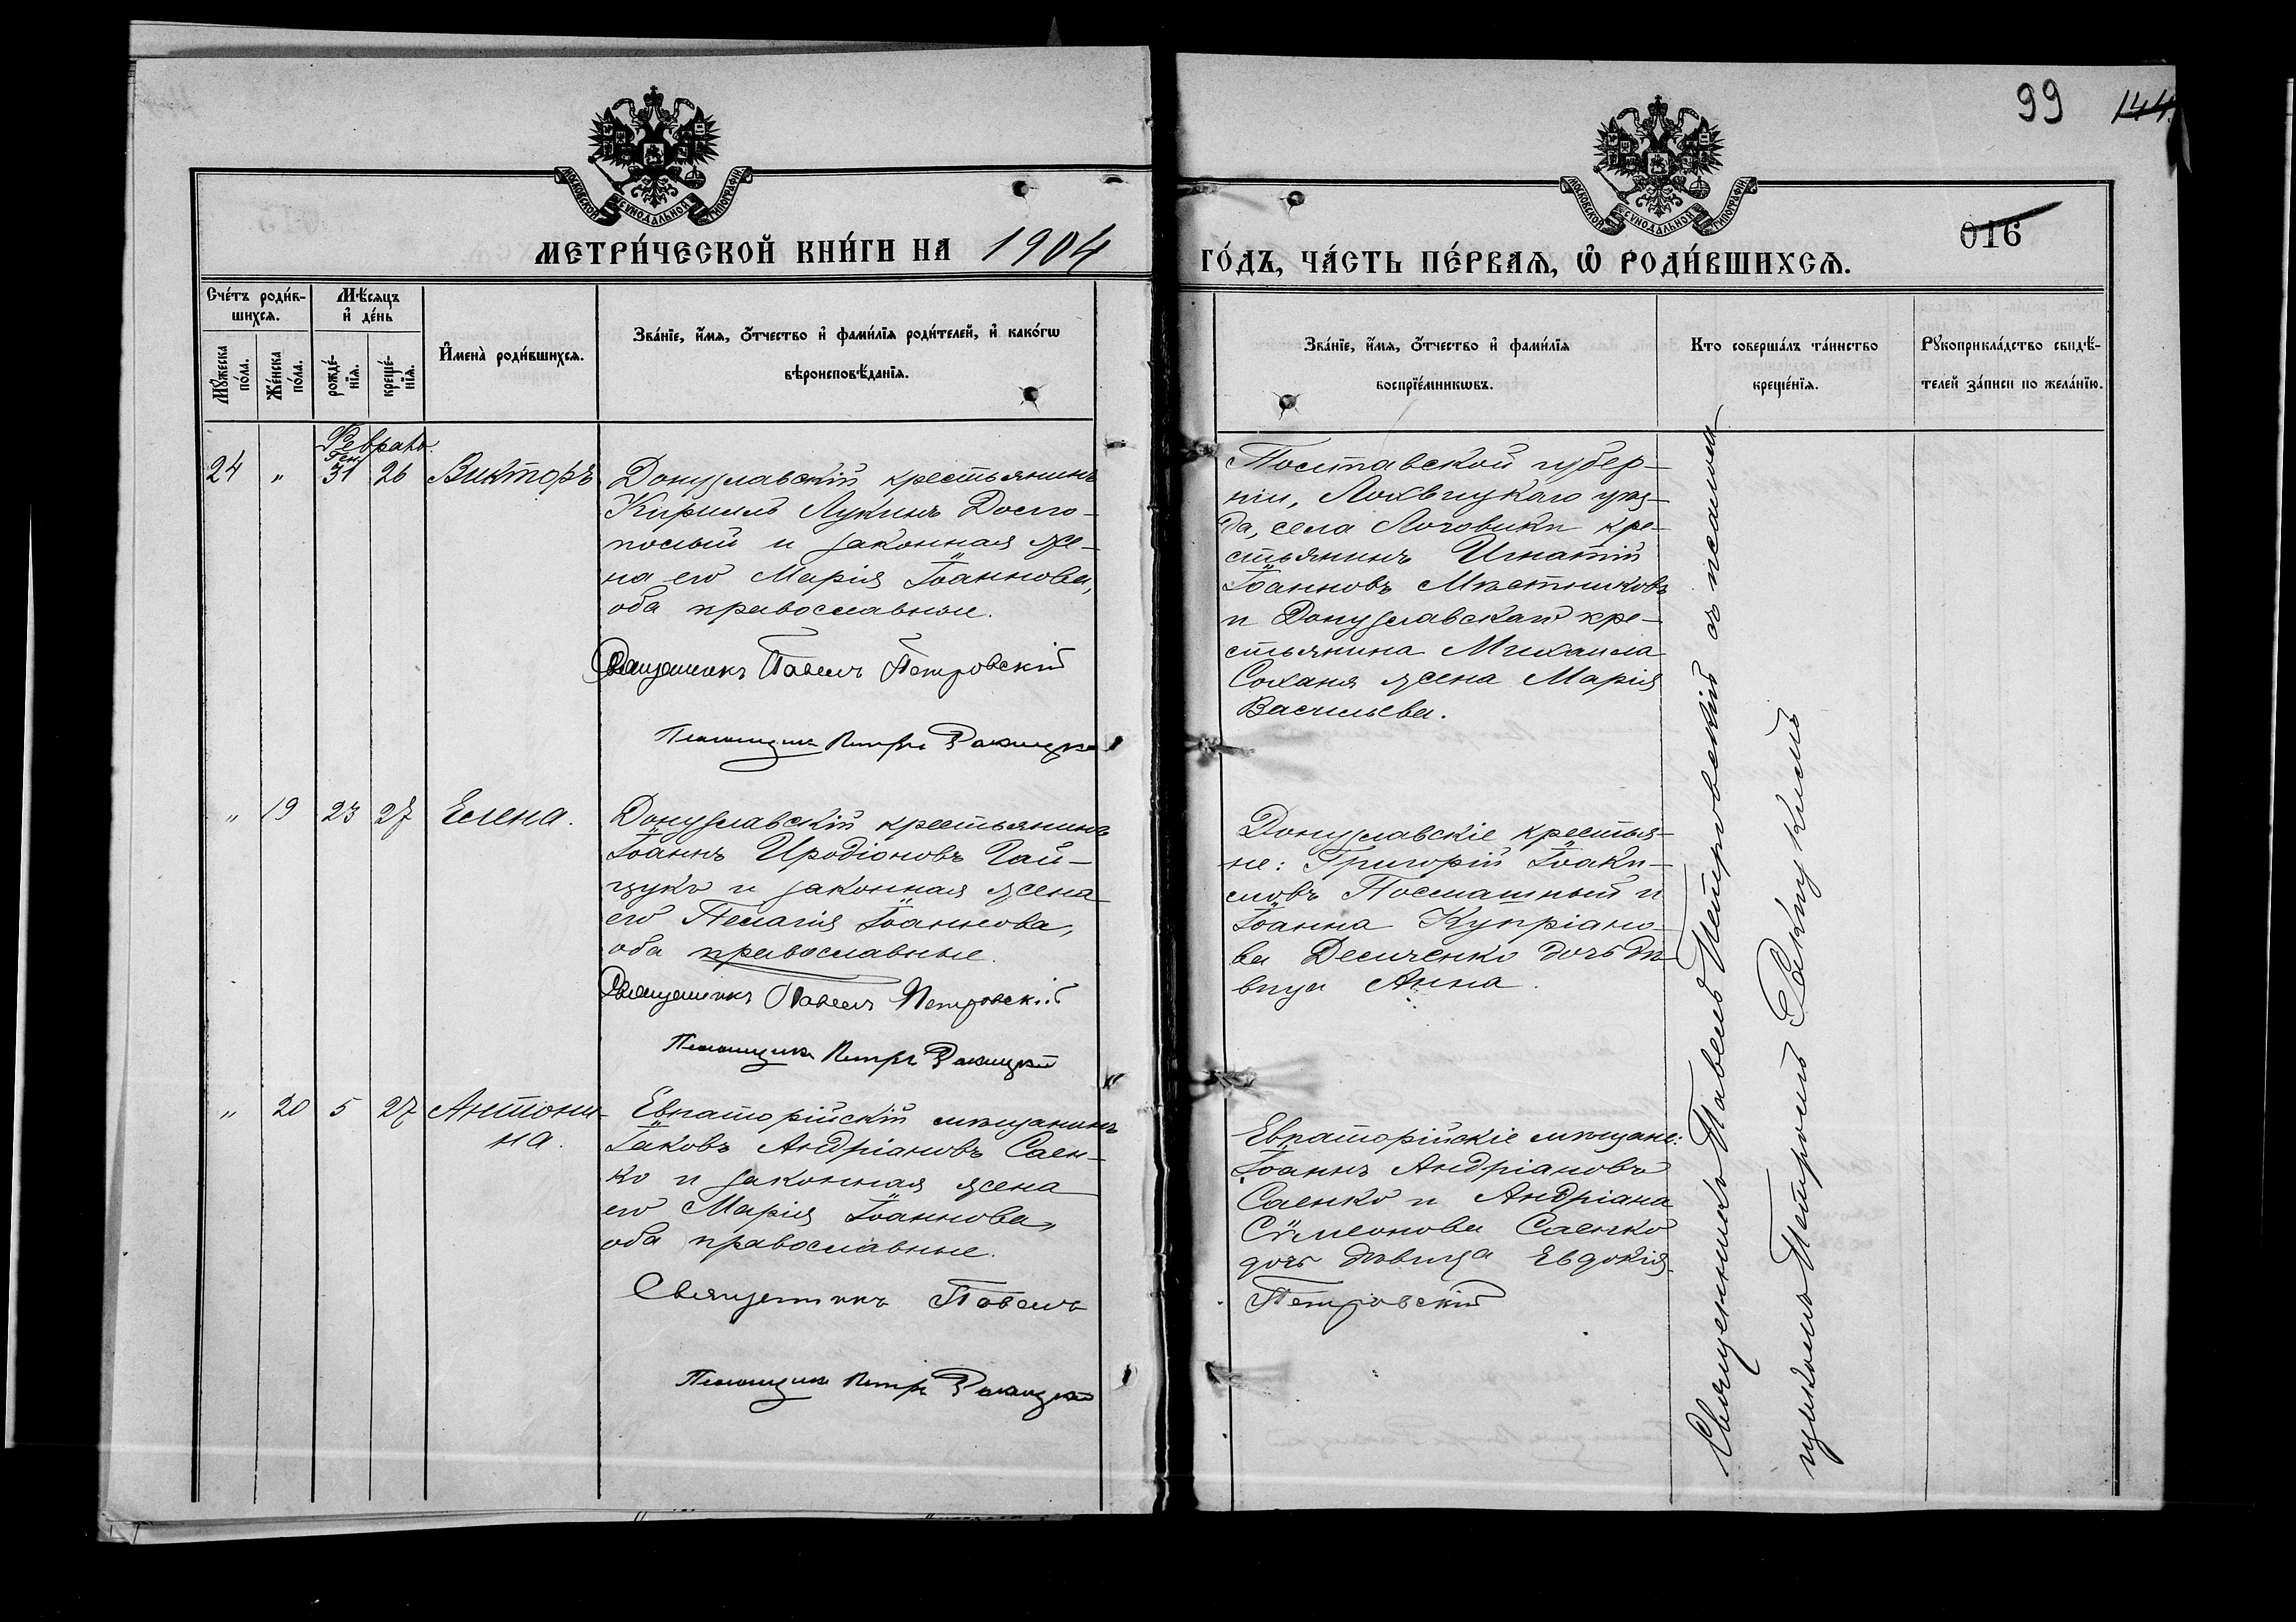 99 144
МОСКОВСКОЙ СѴНОДАЛЬНОЙ ТИПОГРАФІИ
МОСКОВСКОЙ СѴНОДАЛЬНОЙ ТИПОГРАФІИ
016
МЕТРИ́ЧЕСКОЙ КНИ́ГИ НА 1904
ГО́ДЪ, ЧА́СТЬ ПЕ́РВАѦ, Ѡ҆ РОДИ́ВШИХСѦ.
Сче́тъ роди́в-
шихсѧ.
Мѣ́сѧцъ
и҆ де́нь
Мꙋ́жеска
по́ла.
Же́нска
по́ла.
рожде́-
нїѧ.
креще́-
нїѧ.
И҆мена̀ роди́вшихсѧ.
Зва́нїе, и҆́мѧ, ѻ҆́тчество и҆ фами́лїѧ роди́телей, и҆ како́гѡ
вѣроисповѣ́данїѧ.
Зва́нїе, и҆́мѧ, ѻ҆́тчество и҆ фами́лїѧ
воспрїе́мникѡвъ.
Кто соверша́лъ та́инство
креще́нїѧ.
Рꙋкоприкла́дство свидѣ́-
телей за́писи по жела́нїю.
Февраль.
Ген.
24 „ 31 26 Викторъ
Донузлавскій крестьянинъ
Кириллъ Лукинъ Долго-
полый и законная же-
на его Марія Іоаннова,
оба православные.
Священникъ Павелъ Петровскій
Псаломщикъ Петръ Ракицкій
Полтавской губер-
ніи, Лохвицкаго уѣз-
да, села Логовики кре-
стьянинъ Игнатій
Іоанновъ Мѣстниковъ
и Донузлавскаго кре-
стьянина Михаила
Соханя жена Марія
Васильева.
„ 19 23 27 Елена.
Донузлавскій крестьянинъ
Іоаннъ Иродіоновъ Гай-
цукъ и законная жена
его Пелагія Іоаннова,
оба православные.
Священникъ Павелъ Петровскій
Псаломщикъ Петръ Ракицкій
Донузлавскіе крестья-
не: Григорій Іоаки-
мовъ Посмашный и
Іоанна Купріано-
ва Десиченко дочь дѣ-
вица Анна.
„ 20 5 27 Антони-
на.
Евпаторійскій мѣщанинъ
Іаковъ Андріановъ Саен-
ко и законная жена
его Марія Іоаннова,
оба православные.
Священникъ Павелъ
Псаломщикъ Петръ Ракицкій
Евпаторійскіе мѣщане:
Іоаннъ Андріановъ
Саенко и Андріана
Сѵмеонова Саенко
дочь дѣвица Евдокія.
Петровскій
Священникъ Павелъ Петровскій съ псалом-
щикомъ Петромъ Ракицкимъ